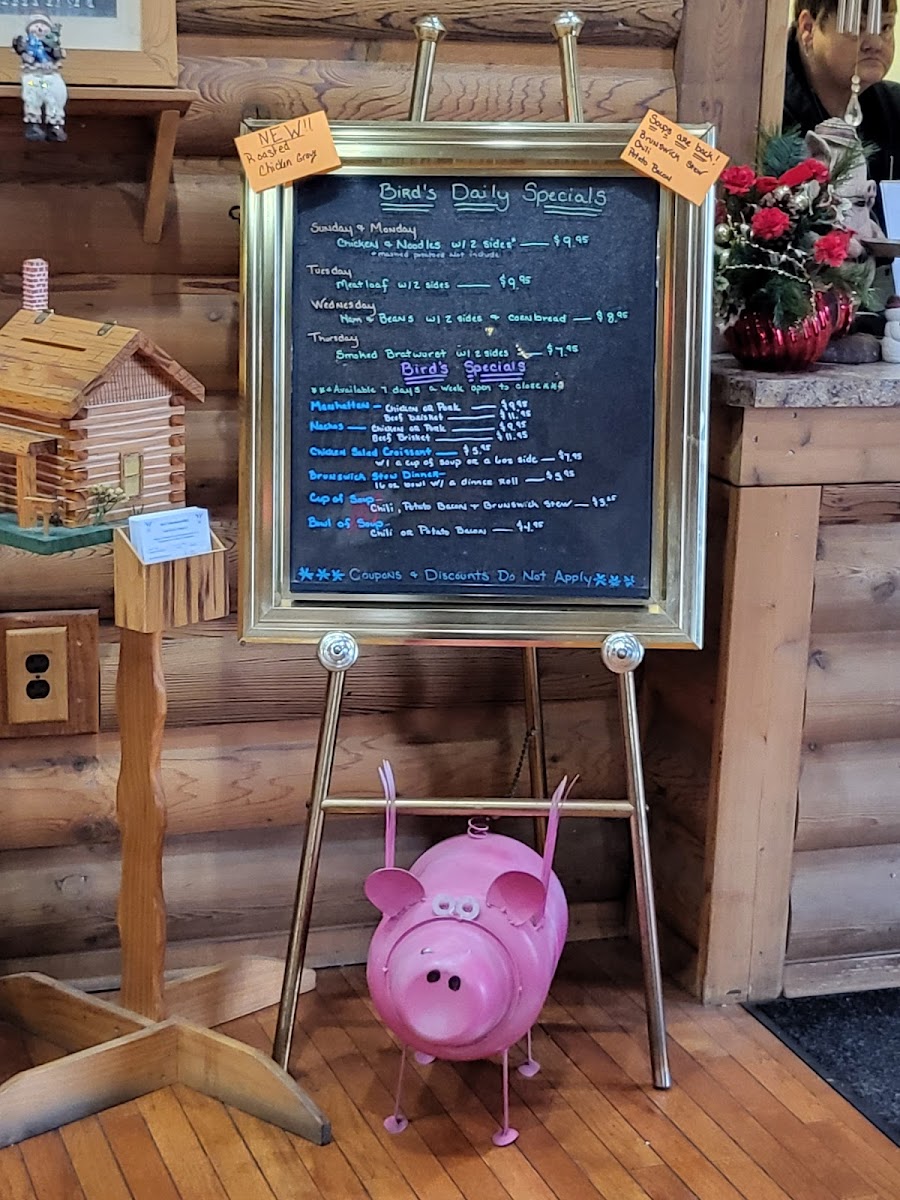 NEW!!
Roasted
Chicken Gravy
Soups are back!
Brunswick Stew
Chili
Potato Bacon
Bird's Daily Specials
Sunday & Monday
Chicken & Noodles w/ 2 sides* — $9.95
*mashed potatoes not include
Tuesday
Meatloaf w/ 2 sides — $9.95
Wednesday
Ham & Beans w/ 2 sides & cornbread — $8.95
Thursday
Smoked Bratwurst w/ 2 sides — $7.95
Bird's Specials
***Available 7 days a week open to close***
Manhatten — Chicken or Pork — $9.95
Beef Brisket — $11.95
Nachos — Chicken or Pork — $9.95
Beef Brisket — $11.95
Chicken Salad Croissant — $5.95
w/ a cup of soup or a 6oz side — $7.95
Brunswick Stew Dinner —
16 oz bowl w/ a dinner roll — $5.95
Cup of Soup —
Chili, Potato Bacon & Brunswick Stew — $3.65
Bowl of Soup —
Chili or Potato Bacon — $4.95
*** Coupons & Discounts Do Not Apply ***